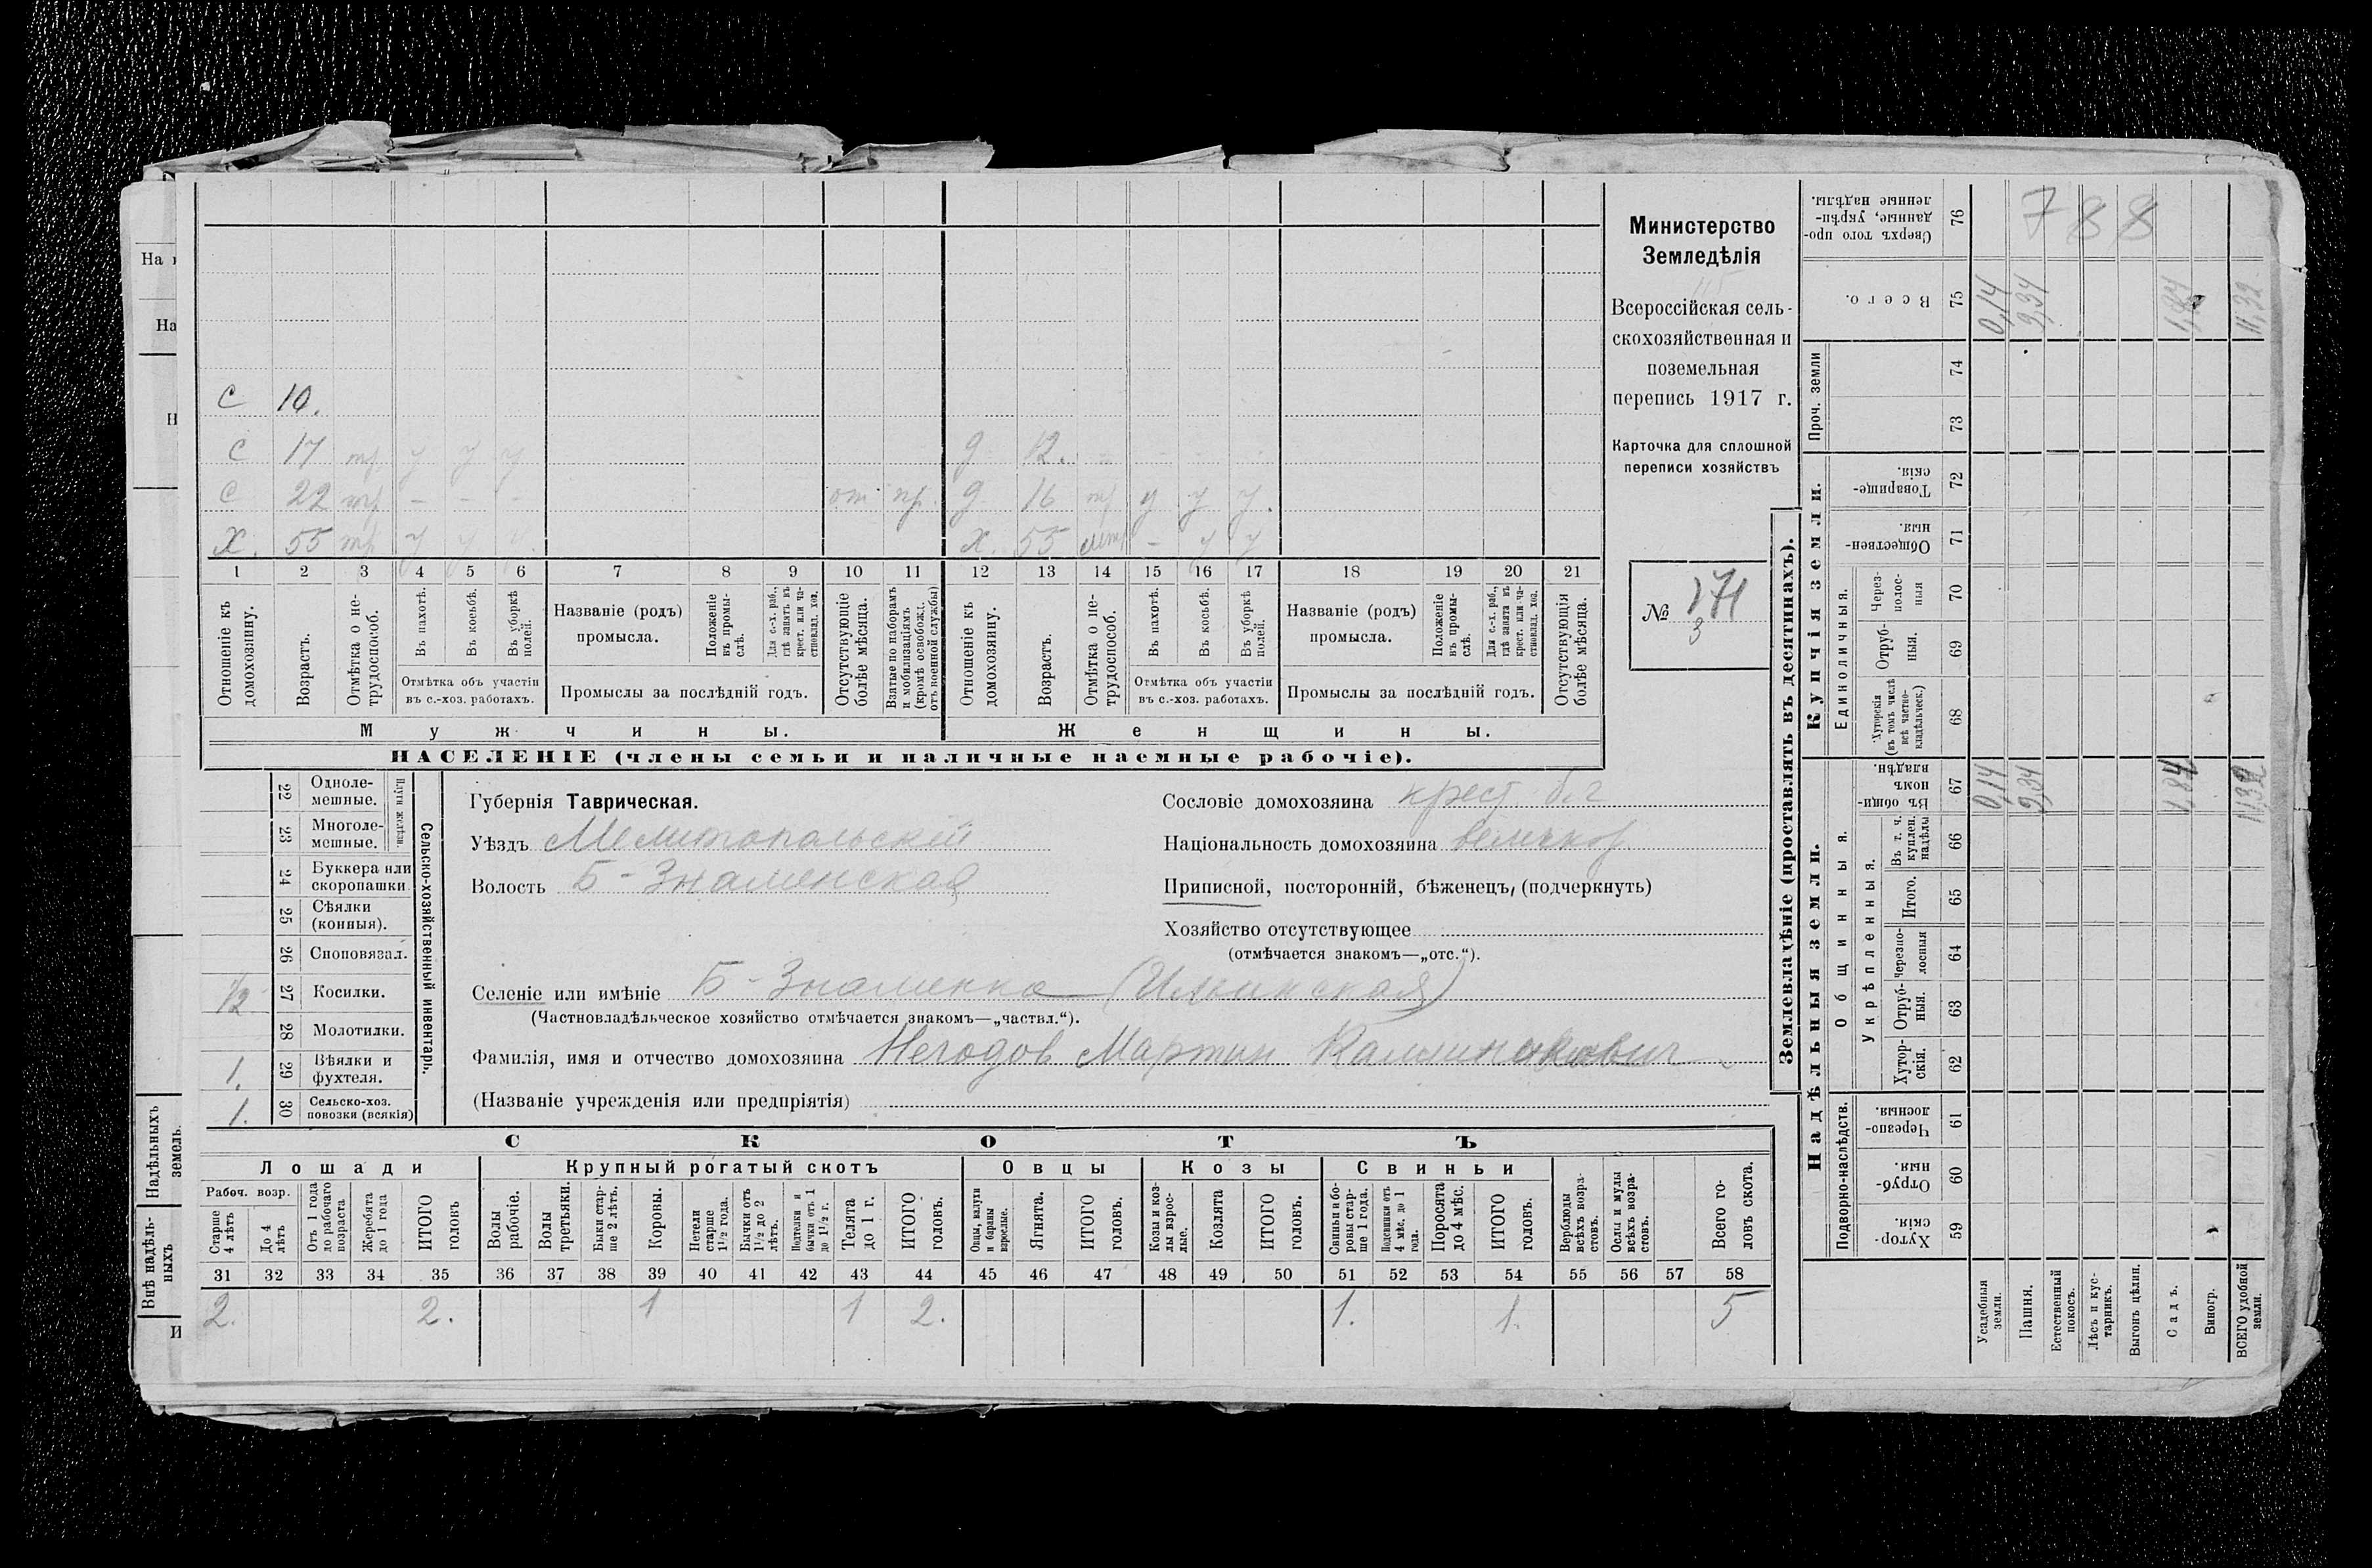 Министерство
Земледѣлія
Всероссійская сель-
скохозяйственная и
поземельная
перепись 1917 г.
Карточка для сплошной
переписи хозяйствъ
№ 171
3
С 10.
С 17 тр. у у у
д 12. – – - -
С 22 тр – – - от пр.
д 16 тр у у у.
Х. 55 тр у у у.
Х. 55 – у у
1 2 3 4 5 6 7 8 9 10 11 12 13 14 15 16 17 18 19 20 21
Отношеніе къ домохозяину.
Возрастъ.
Отмѣтка о не-трудоспособ.
Въ пахотѣ.
Въ косьбѣ.
Въ уборкѣ полей.
Отмѣтка объ участіи
въ с.-хоз. работахъ.
Названіе (родъ)
промысла.
Положеніе въ промы-слѣ.
Для с.-х. раб., гдѣ занятъ въ крест. или ча-стновлад. хоз.
Промыслы за послѣдній годъ.
Отсутствующіе болѣе мѣсяца.
Взятые по наборамъ и мобилизаціямъ (кромѣ освобожд. отъ военной службы)
Отношеніе къ домохозяину.
Возрастъ.
Отмѣтка о не-трудоспособ.
Въ пахотѣ.
Въ косьбѣ.
Въ уборкѣ полей.
Отмѣтка объ участіи
въ с.-хоз. работахъ.
Названіе (родъ)
промысла.
Положеніе въ промы-слѣ.
Для с.-х. раб., гдѣ занята въ крест. или ча-стновлад. хоз.
Промыслы за послѣдній годъ.
Отсутствующія болѣе мѣсяца.
Мужчины.
Женщины.
НАСЕЛЕНІЕ (члены семьи и наличные наемные рабочіе).
Губернія Таврическая.
Уѣздъ Мелитопольскій
Волость Б-Знаменская
Сословіе домохозяина крест. б.г
Національность домохозяина великор
Приписной, посторонній, бѣженецъ, (подчеркнуть)
Хозяйство отсутствующее
(отмѣчается знакомъ—„отс.“).
Селеніе или имѣніе Б-Знаменка (Ильинская)
(Частновладѣльческое хозяйство отмѣчается знакомъ—„частвл.“).
Фамилія, имя и отчество домохозяина Негодов Мартин
(Названіе учрежденія или предпріятія)
Сельско-хозяйственный инвентарь.
Плуги желѣзн
22 Одноле-мешные.
23 Многоле-мешные.
24 Буккера или скоропашки
25 Сѣялки (конныя).
26 Сноповязал.
1/2 27 Косилки.
28 Молотилки.
1. 29 Вѣялки и фухтеля.
1. 30 Сельско-хоз. повозки (всякія)
СКОТЪ
Лошади
Крупный рогатый скотъ
Овцы
Козы
Свиньи
Рабоч. возр.
Старше 4 лѣтъ
До 4 лѣтъ
Отъ 1 года до рабочаго возраста
Жеребята до 1 года
ИТОГО головъ
Волы рабочіе.
Волы третьяки.
Быки стар-ше 2 лѣтъ.
Коровы.
Нетели старше 1½ года.
Бычки отъ 1½ до 2 лѣтъ.
Подтелки и бычки отъ 1 до 1½ г.
Телята до 1 г.
ИТОГО головъ.
Овцы, валухи и бараны взрослые.
Ягнята.
ИТОГО головъ.
Козы и коз-лы взрос-лые.
Козлята
ИТОГО головъ.
Свиньи и бо-ровы стар-ше 1 года.
Подсвинки отъ 4 мѣс. до 1 года.
Поросята до 4 мѣс.
ИТОГО головъ.
Верблюды всѣхъ возра-стовъ.
Ослы и мулы всѣхъ возра-стовъ.
Всего го-ловъ скота.
31 32 33 34 35 36 37 38 39 40 41 42 43 44 45 46 47 48 49 50 51 52 53 54 55 56 57 58
2. 2. 1 1 2. 1. 1. 5
Землевладѣніе (проставлять въ десятинахъ).
Купчія земли.
Надѣльныя земли.
Сверхъ того про-данные, укрѣп-ленные надѣлы. 76
788
Всего. 75 0,14 9,34 1,84 11,32
Проч. земли
74
73
Товарище-скія. 72
Обществен-ныя. 71
Единоличныя.
Через-полос-ныя 70
Отруб-ныя. 69
Хуторскія (въ томъ числѣ всѣ частно-владѣльческ.) 68
Общинныя.
Въ общи-номъ владѣн. 67 0,14 9,34 1,84 11,32
Укрѣпленныя.
Въ т. ч. куплен. надѣлы 66
Итого. 65
Черезпо-лосныя 64
Отруб-ныя. 63
Хутор-скія. 62
Подворно-наслѣдств.
Черезпо-лосныя. 61
Отруб-ныя. 60
Хутор-скія. 59
Усадебныя земли.
Пашня.
Естественный покосъ.
Лѣсъ и кус-тарникъ.
Выгонъ цѣлин.
Садъ.
Виногр.
ВСЕГО удобной земли.
На
На
Надѣльныхъ земель.
Внѣ надѣль-ныхъ
И